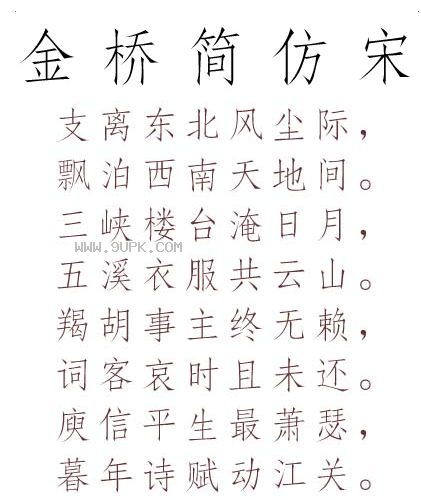 金桥简仿宋
支离东北风尘际，
飘泊西南天地间。
三峡楼台淹日月，
WWW.9UPK.COM
五溪衣服共云山。
羯胡事主终无赖，
词客哀时且未还。
庾信平生最萧瑟，
暮年诗赋动江关。